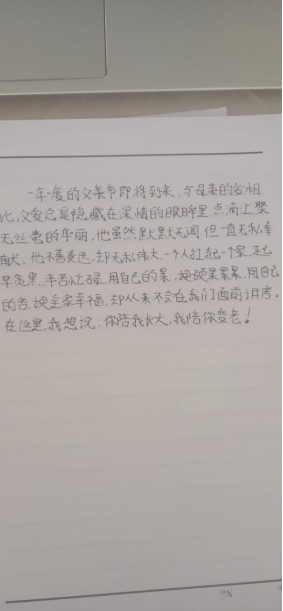 一年一度的父亲节即将到来,与母亲的爱相
比,父爱总是隐藏在深情的眼眸里,点滴汇聚
无丝毫的华丽,他虽然默默无闻但一直无私奉
献,他不善表达,却无私伟大,一个人扛起一个家,起
早贪黑,辛苦忙碌,用自己的累,换硕果累累,用自己
的苦,换全家幸福,却从来不会在我们面前诉苦,
在这里,我想说:你陪我长大,我陪你变老!
No